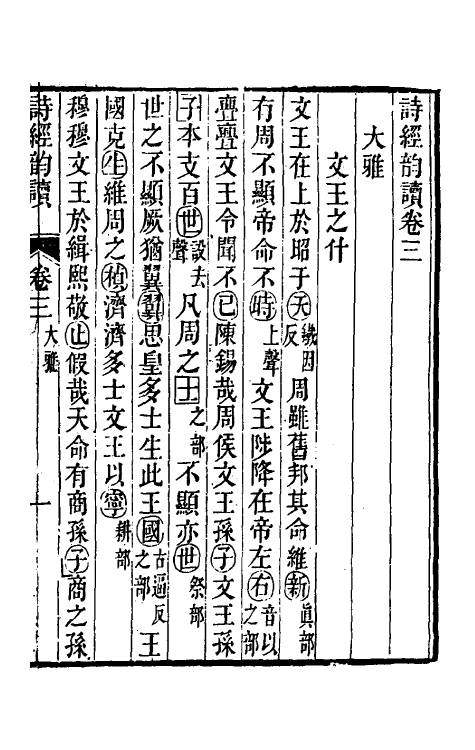 詩經韵讀卷三
大雅
文王之什
文王在上於昭于天鐵因反周雖舊邦其命維新真部
有周不顯帝命不時上聲文王陟降在帝左右音以之部
亹亹文王令聞不已陳錫哉周侯文王孫子文王孫
子本支百世設去聲凡周之士之部不顯亦世祭部
世之不顯厥猶翼翼思皇多士生此王國古逼反之部王
國克生維周之楨濟濟多士文王以寧耕部
穆穆文王於緝熙敬止假哉天命有商孫子商之孫
詩經韵讀 卷三 大雅 一